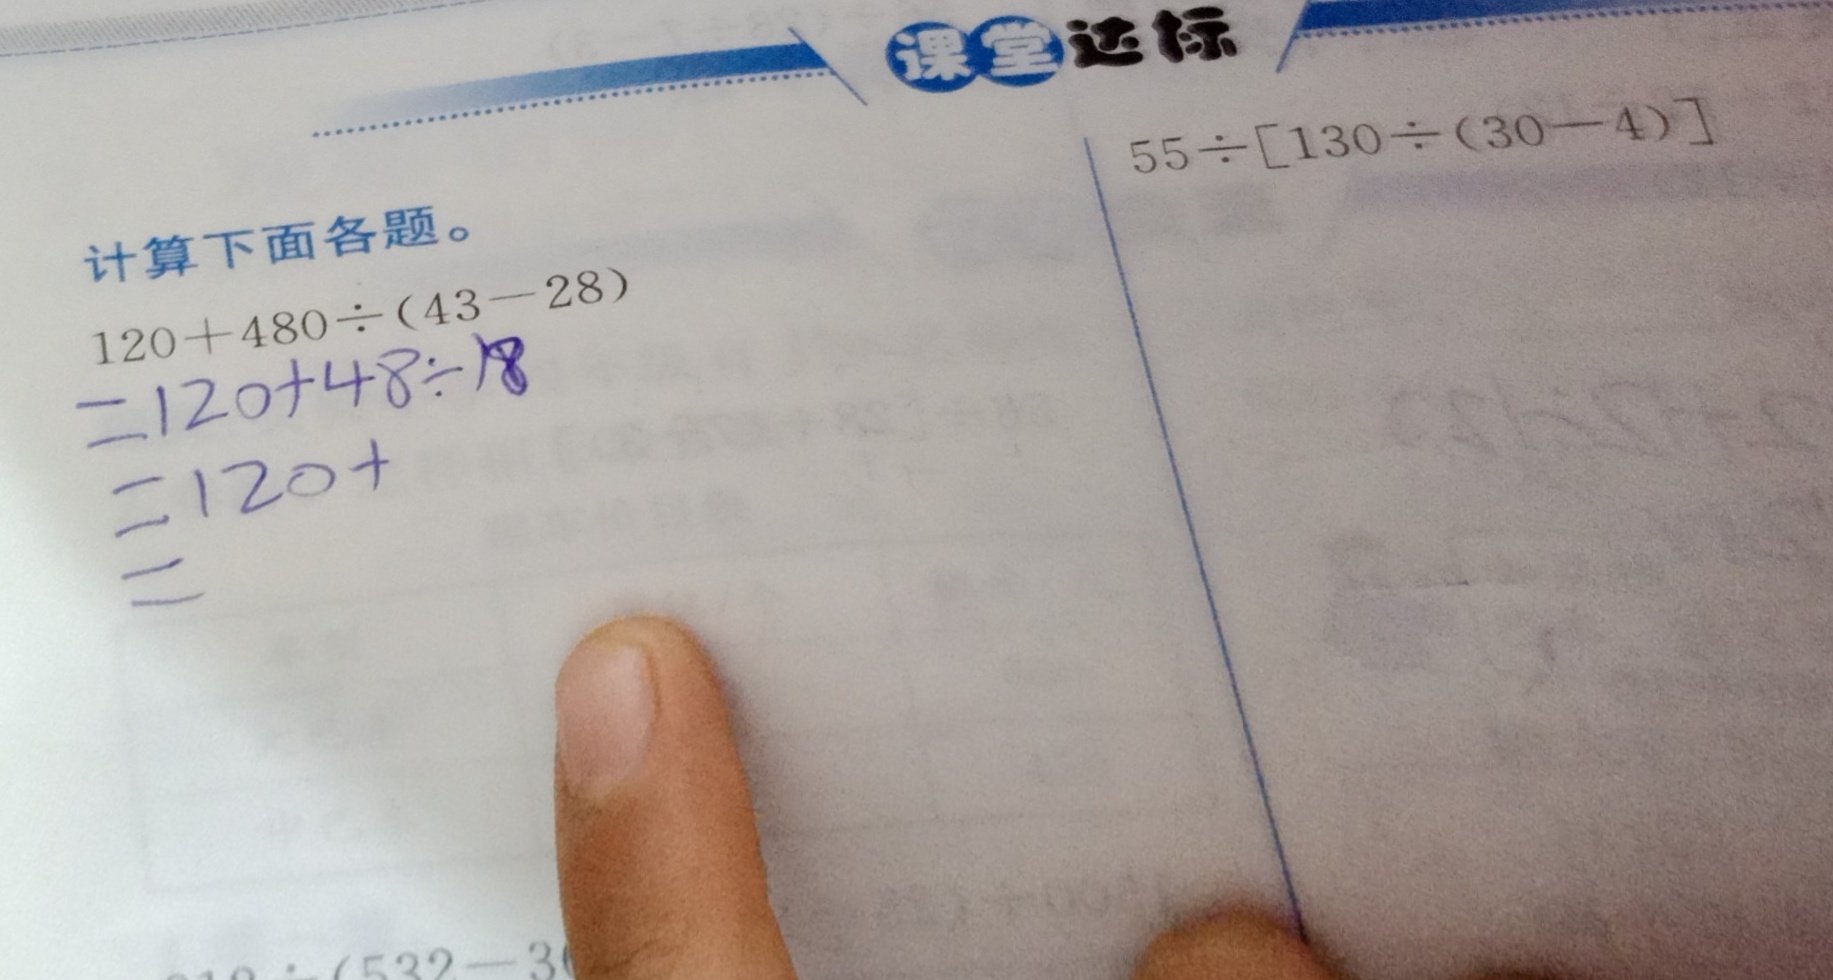 课堂达标
计算下面各题。
120+480÷(43-28)
=120+48÷18
=120+
=
÷(532-3
55÷[130÷(30-4)]